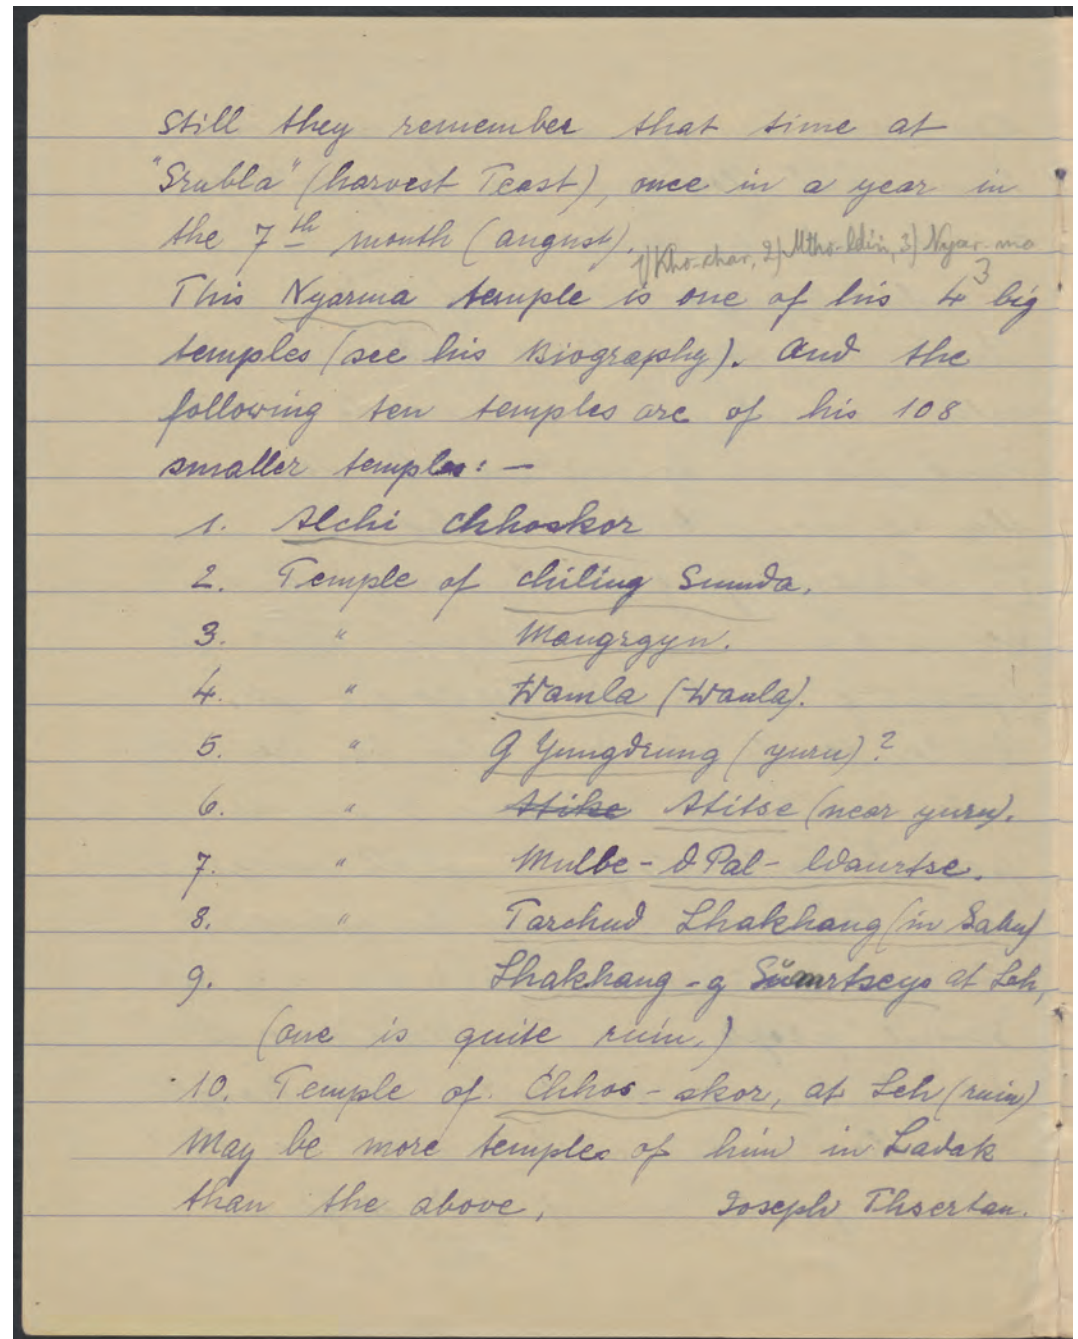 Still they remember that time at
"Srubla" (harvest Feast), once in a year in
the 7th month (august).
1) Kho-char, 2) Mtho-ldin, 3) Nyar-ma
3
This Nyarma temple is one of his 4 big
temples (see his Biography). And the
following ten temples are of his 108
smaller temples: —
1. Alchi Chhoskor
2. Temple of chiling Sumda.
3. " Mangrgyn.
4. " Wamla (Wanla).
5. " G Yungdrung (yuru)?
6. " Atitse (near yuru).
7. " Mulbe - d Pal -
8. " Tarchud Lhakhang (in Sabu)
9. Lhakhang - g at Leh,
(one is quite ruin,)
10. Temple of Chhos - skor, at Leh (ruin)
May be more temples of him in Ladak
than the above, Joseph Thsertan.